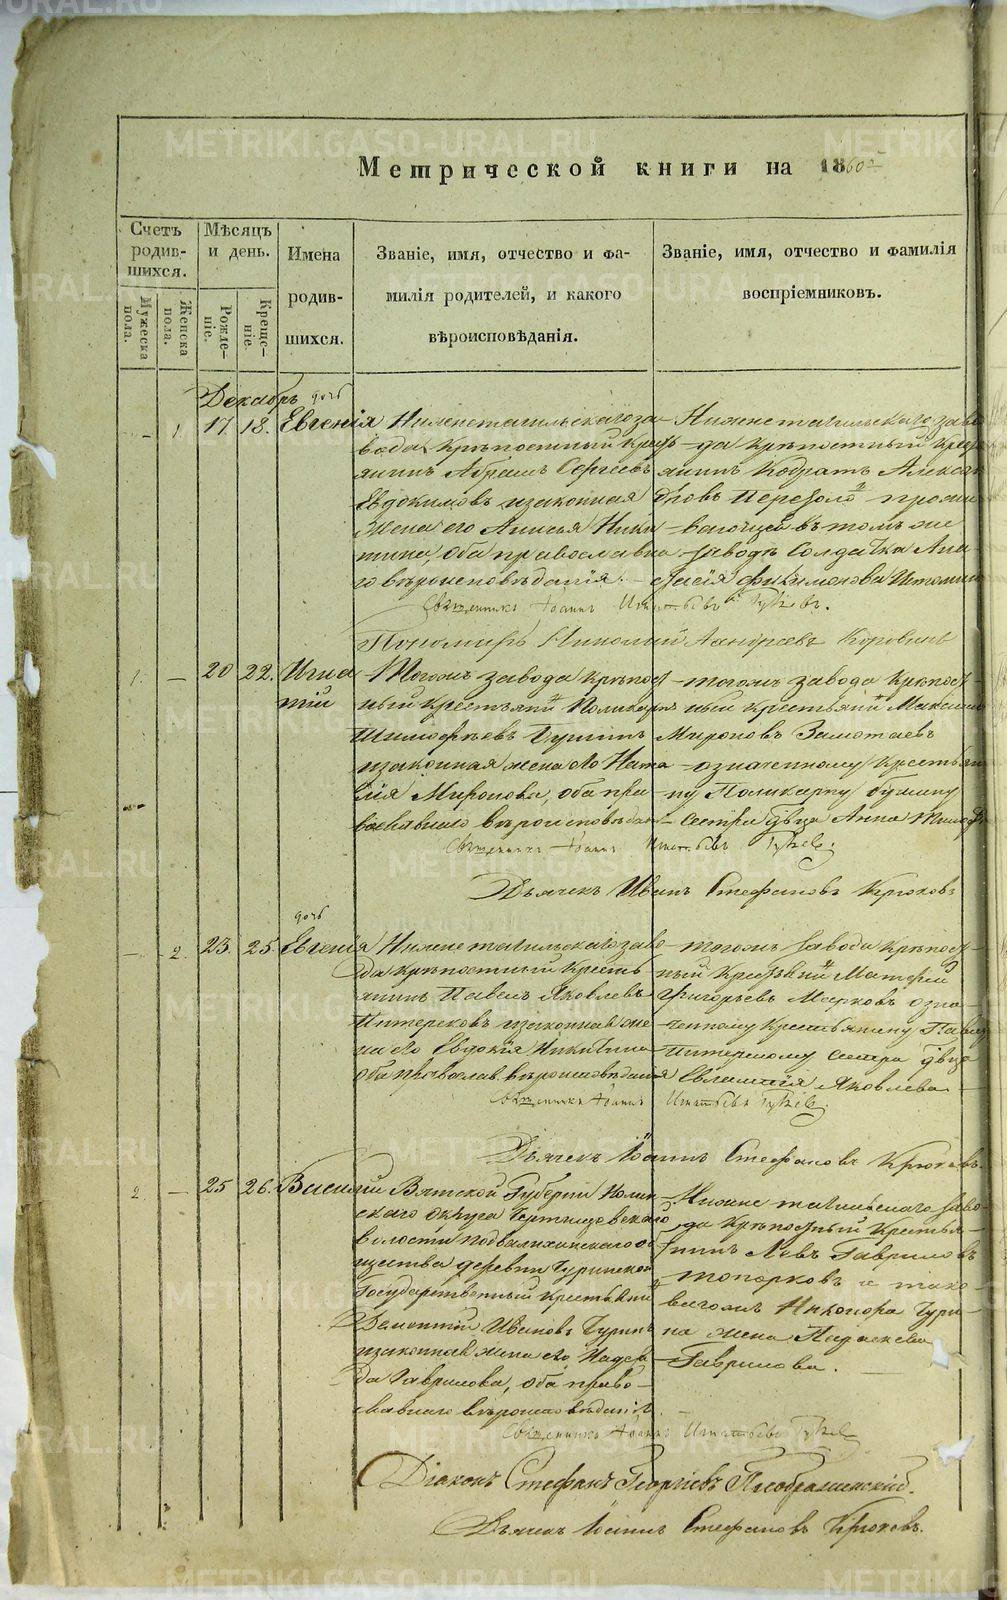 Метрической книги на 1860
Счетъ родившихся.
Мужеска пола.
Женска пола.
Мѣсяцъ и день.
Рожденіе.
Крещеніе.
Имена родившихся.
Званіе, имя, отчество и фамилія родителей, и какого вѣроисповѣданія.
Званіе, имя, отчество и фамилія воспріемниковъ.
Декабрь
дочь
1. 17. 18. Евгенія
Нижнетагильскаго за-
вода Крѣпостный крес
янинъ Абрамъ Сергѣевъ
Евдокимовъ и законная
Жена его Анисья Ники
тина, оба православна
го вѣроисповѣданія.
Нижнетагильскаго заво
да Крѣпостный Крест
янинъ Кодратъ Алексан
дровъ и прожи
вающей въ томъ же
заводѣ Солдатка Ана
стасія Филимонова
Священникъ Іоаннъ Игнатьевъ
Пономарь Николай Андреевъ Коровинъ
1. — 20 22. Игна
тій
Тогожъ завода Крѣпост
ный Крестьянинъ Поликарпъ
Тимофѣевъ
и законная жена его Ната
лія Миронова, оба пра
вославнаго вѣроисповѣдан
тогожъ завода Крѣпост
ный Крестьянинъ Максимъ
Мироновъ Замотаевъ
означенному Крестьяни
ну Поликарпу
сестра Дѣвица Анна Тимоф
Священникъ Іоаннъ Игнатьевъ
Дьячекъ Иванъ Стефановъ Крюковъ
дочь
— 2. 23. 25. Евгенія
Нижнетагильскаго заво
да Крѣпостный Кресть
янинъ Павелъ Яковлевъ
и законная же
на его Евдокія Никитина
оба православ. вѣроисповѣданія
тогожъ Завода Крѣпост
ный Крестьянинъ Матфей
Григорьевъ Марковъ озна
ченному Крестьянину Павлу
сестра Дѣвица
Евлампія Яковлева
Священникъ Іоаннъ Игнатьевъ
Дьячекъ Іоаннъ Стефановъ Крюковъ.
2 — 25 26. Василій
Вятской Губерніи Нолин
скаго округа
волости об
щества деревни
Государственный Крестьянинъ
Дементій Ивановъ
и законная жена его Надеж
да Гаврилова, оба право
славнаго вѣроисповѣданія
Нижнетагильскаго заво
да Крѣпостный Крестья
нинъ Левъ Гавриловъ
Топорковъ и тако
вагожъ
на жена Параскева
Гаврилова.
Священникъ Іоаннъ Игнатьевъ
Діаконъ Стефанъ Георгіевъ Преображенскій.
Дьячекъ Іоаннъ Стефановъ Крюковъ.
METRIKI.GASO-URAL.RU